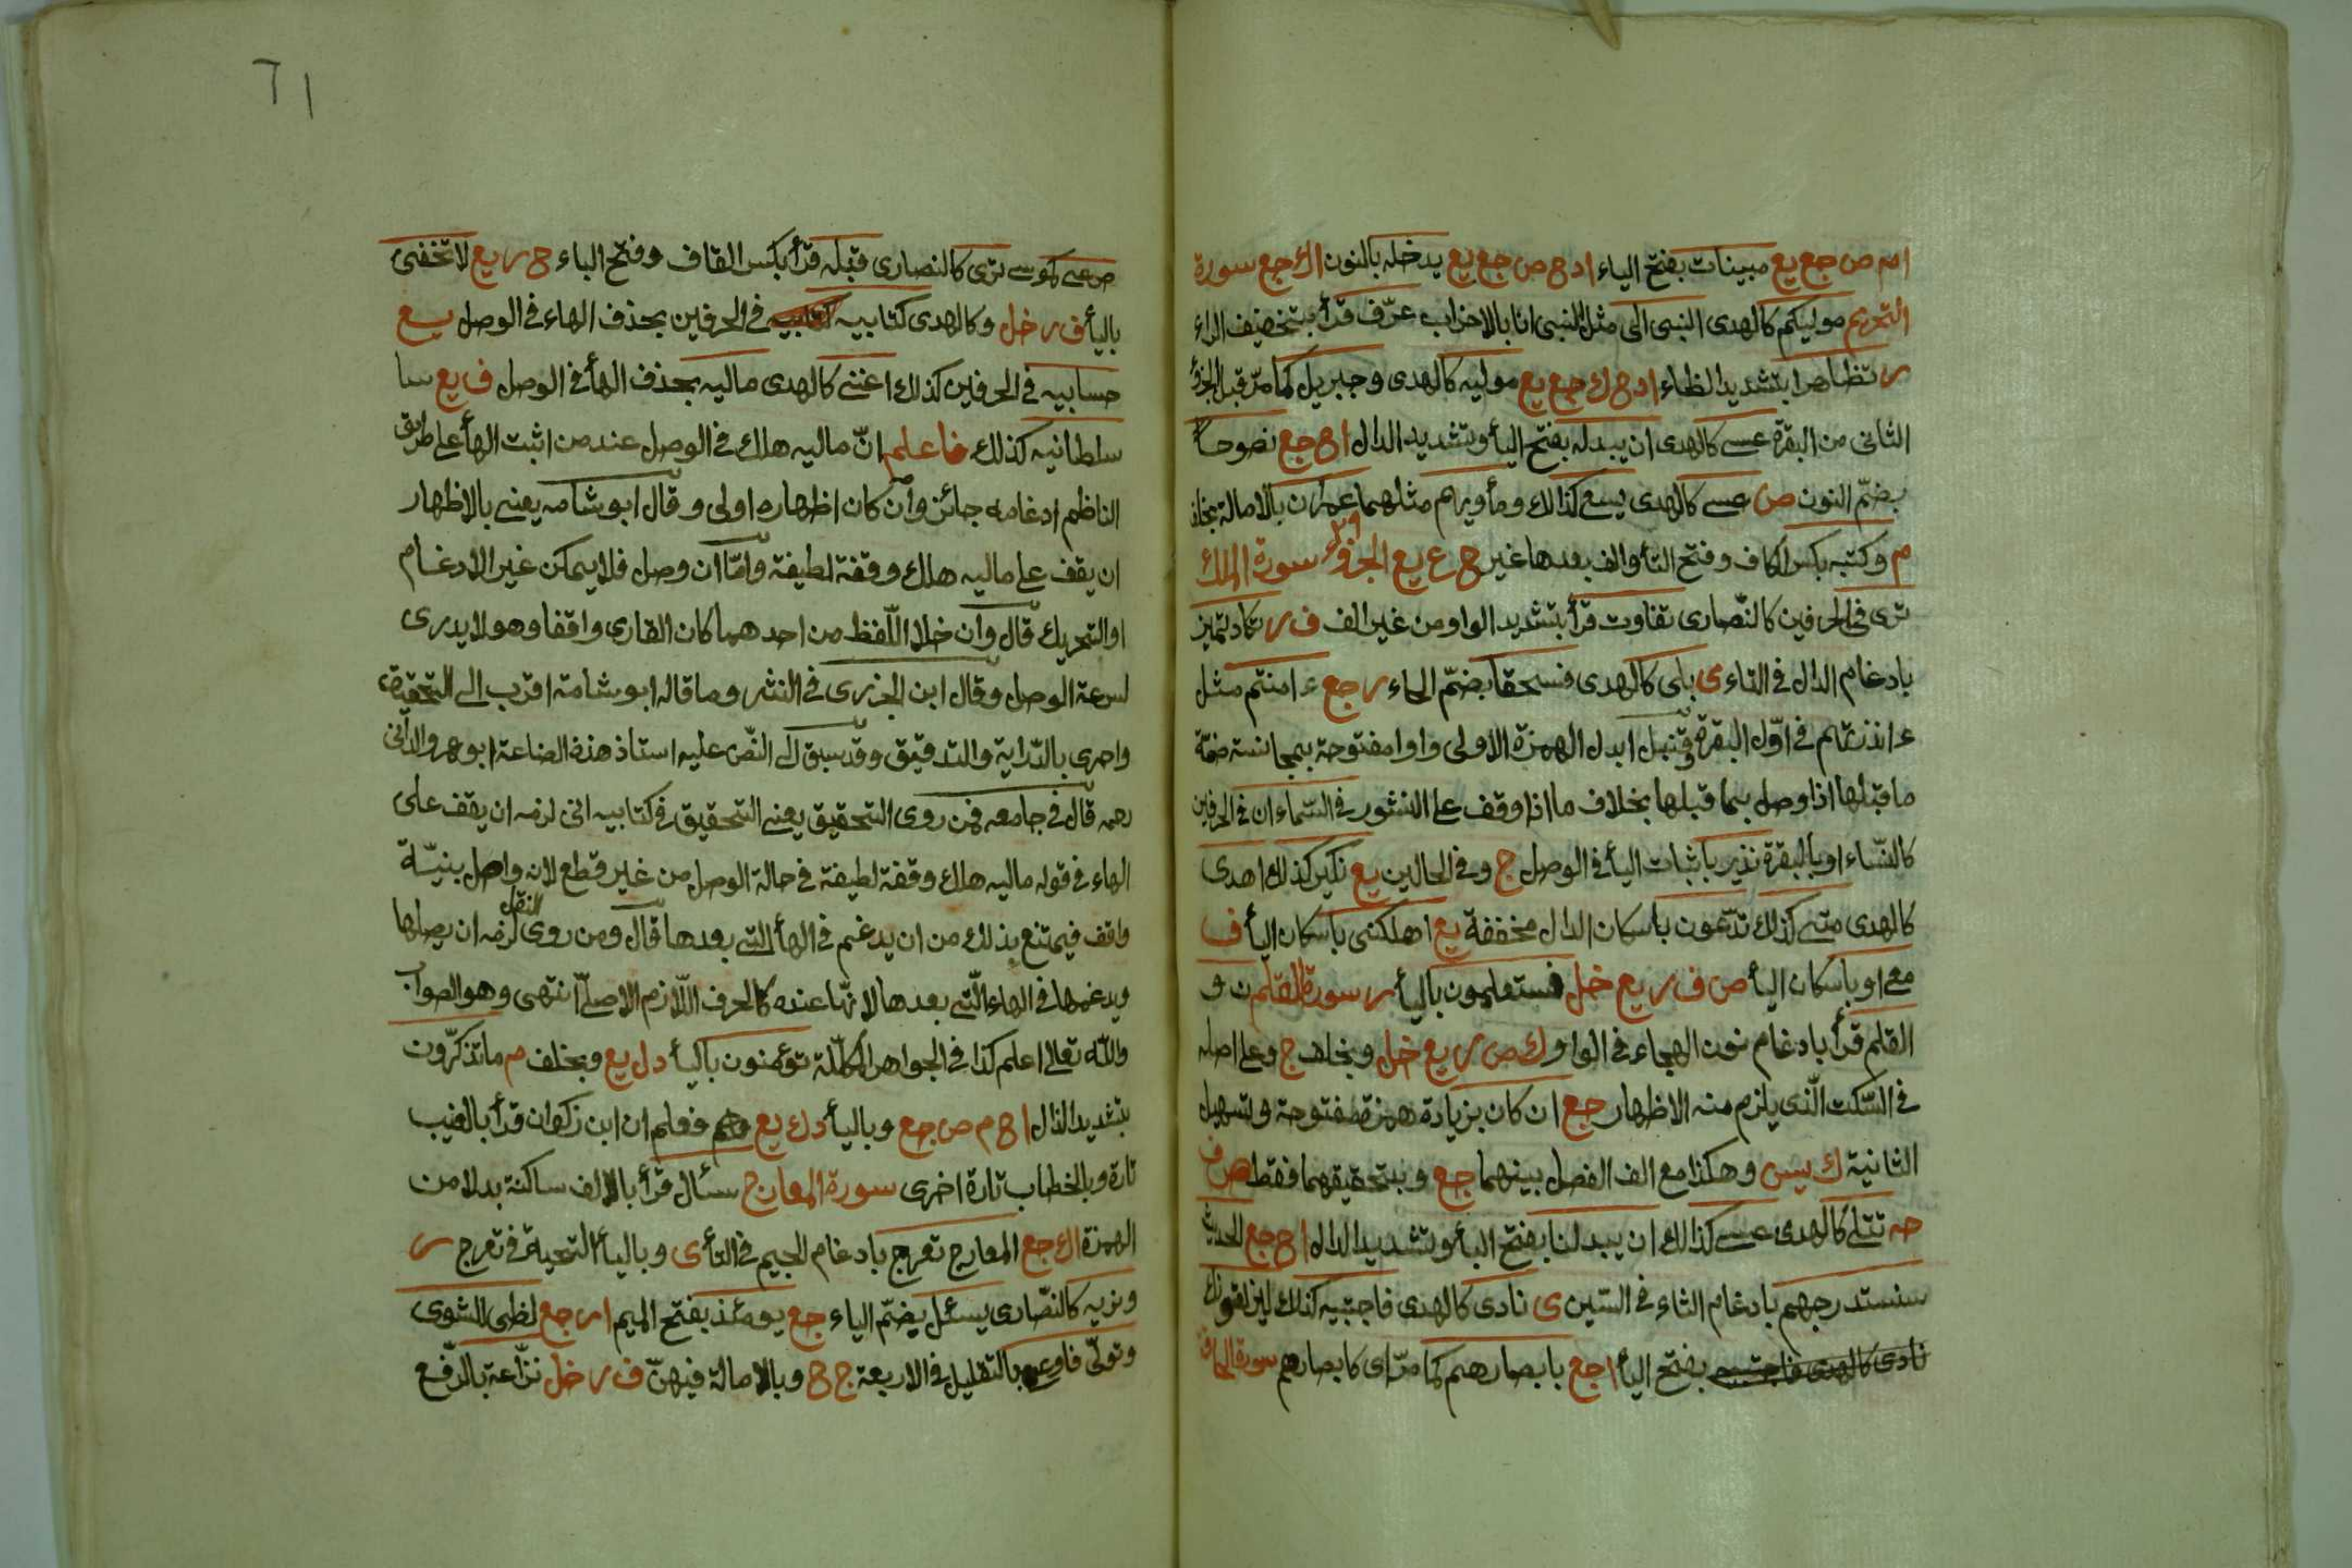 ام ص جع يع مبينات بفتح الياء ا د ح ص جع يع يدخله بالنون ا ك جع سورة
التحريم موليكم كالهدى النبى الى مثل النبى انا بالاحزاب عرّف قرأ بتخفيف الراء
ر تظاهرا بتشديد الظاء ا د ح ك جع يع موليه كالهدى وجبريل كما مرّ قبل الجزء
الثانى من البقرة عسى كالهدى ان يبدله بفتح اليأ وتشديد الدال ا ح جع نصوحا
بضمّ النون ص عسى كالهدى يسعى كذلك ومأويهم مثلهما عمران بالامالة بخلف
م وكتبه بكسر الكاف وفتح التأ والف بعدها غير ح ع يع الجزؤ سورة الملك
ترى فى الحرفين كالنّصارى تفاوت قرأ بتشديد الواو من غير الف ف ر تكاد تميز
بادغام الدال فى التاء ى بلى كالهدى فسحقا بضمّ الحاء ر جع ءامنتم مثل
ءانذرتهم فى اوّل البقرة وقنبل ابدل الهمزة الاولى واوا مفتوحة بمجانسة ضمّة
ما قبلها اذا وصل بما قبلها بخلاف ما اذا وقف على النشور فى السّماء ان فى الحرفين
كالنّساء او بالبقرة نذير باثبات اليأ فى الوصل ج وفى الحالين يع نكير كذلك اهدى
كالهدى متى كذلك تدّعون باسكان الدال مخففة يع اهلكنى باسكان اليأ ف
معى او باسكان اليأ ص ف ر يع خل فستعلمون باليأ ر سورة القلم ن و
القلم قرأ بادغام نون الهجاء فى الواو ك ص ر يع خل وبخلف ج وعلى اصله
فى السّكت الّذى يلزم منه الاظهار جع ان كان بزيادة همزة مفتوحة وتسهيل
الثانية ك يس وهكذا مع الف الفصل بينهما جع وبتحقيقهما فقط ص ف
حه تتلى كالهدى عسى كذلك ان يبدلنا بفتح البأ وتشديد الدال ا ح جع الحديث
سنستدرجهم بادغام الثاء فى السّين ى نادى كالهدى فاجتبيه كذلك ليزلقونك
بفتح اليأ ا جع بابصارهم كما مرّ اى كابصارهم سورة الحاقة
صرعى كموسى ترى كالنصارى قبله قرأ بكسر القاف وفتح الباء ح ر يع لا تخفى
باليأ ف ر خل وكالهدى كتابيه فى الحرفين بحذف الهاء فى الوصل يع
حسابيه فى الحرفين كذلك اغنى كالهدى ماليه بحذف الهأ فى الوصل ف يع
سلطانيه كذلك فاعلم انّ ماليه هلك فى الوصل عند من اثبت الهأ على طريق
الناظم ادغامه جائز وان كان اظهاره اولى وقال ابو شامه يعنى بالاظهار
ان يقف على ماليه هلك وقفة لطيفة وامّا ان وصل فلا يمكن غير الادغام
او التحريك قال وان خلا اللّفظ من احدهما كان القارى واقفا وهو لا يدرى
لسرعة الوصل وقال ابن الجزرى فى النشر وما قاله ابو شامة اقرب الى التحقيق
واحرى بالدّراية والتدقيق وقد سبق الى النّص عليه استاذ هذه الصناعة ابو عمرو الدانى
رحمه قال فى جامعه فمن روى التحقيق يعنى التحقيق فى كتابيه انى لزمه ان يقف على
الهاء فى قوله ماليه هلك وقفة لطيفة فى حالة الوصل من غير قطع لانه واصل بنيّة
واقف فيمتنع بذلك من ان يدغم فى الهأ التى بعدها قال ومن روى النقل لزمه ان يصلها
ويدغمها فى الهاء الّتى بعدها لانّها عنده كالحرف اللّازم الاصلىّ انتهى وهو الصواب
والله تعالى اعلم كذا فى الجواهر المكلّلة تؤمنون باليأ د ل يع وبخلف م ما تذكّرون
بتشديد الذال ا ح م ص جع وباليأ د ك يع فعلم ان ابن ذكوان قرأ بالغيب
تارة وبالخطاب تارة اخرى سورة المعارج سئال قرأ بالالف ساكنة بدلا من
الهمزة ا ك جع المعارج تعرج بادغام الجيم فى التأ ى وباليأ التحية فى تعرج ر
ونريه كالنّصارى يسئل بضمّ الياء جع يومئذ بفتح الميم ا ر جع لظى للشوى
وتولّى فاوعى بالتقليل فى الاربعة ج ح وبالامالة فيهنّ ف ر خل نزّاعة بالرّفع